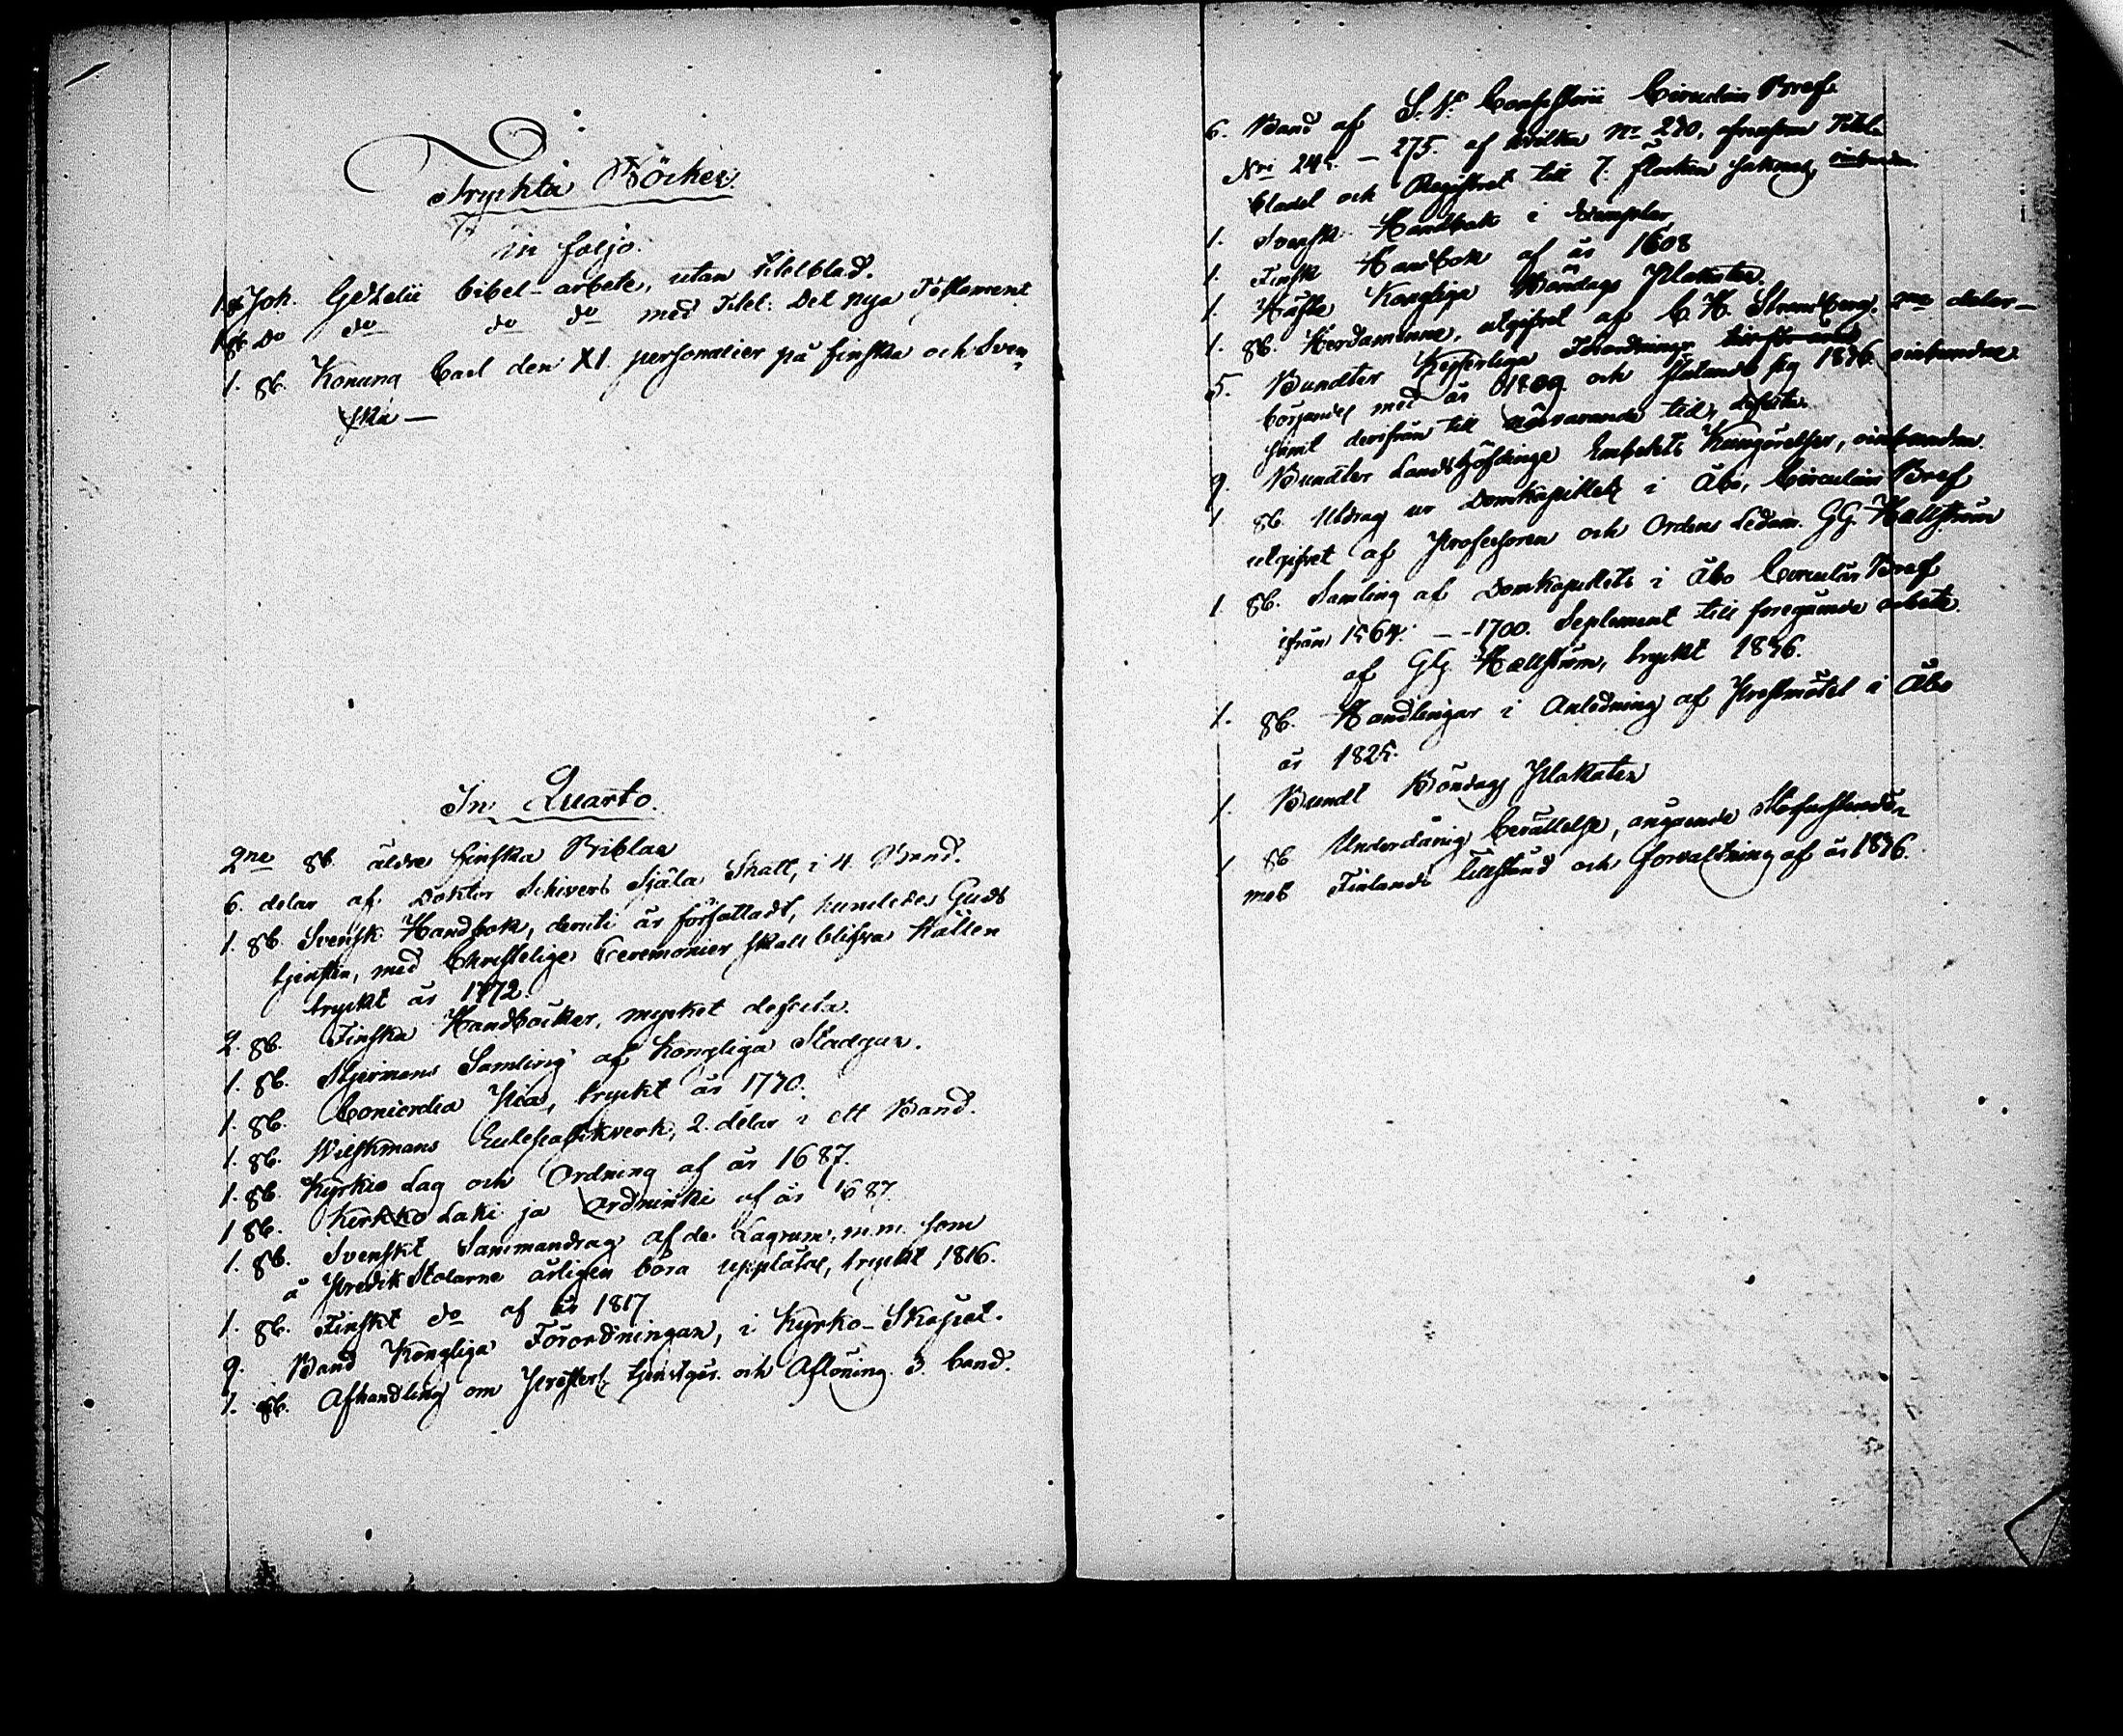 Tryckta Böcker.
in foljo.
1. st Joh. Gezelii bibel-arbete, utan titelblad.
1. st. Do do do do med Titel: Det nya Testament
1. st. Konung Carl den XI. personalier på finska och Sven
ska —
In Quarto.
2ne st. äldre finska Biblar
6. delar af Doktor Schivers Själa Skatt, i 4. Band.
1. st. Svensk Handbok, deruti är författadt, huruledes Guds
tjensten, med Christelige Ceremonier skall blifva hållen
tryckt år 1772.
2. st. Finska Handböcker, mycket defecta.
1. st. Stjermans Samling af Kongliga Stadgar.
1. st. Concordia Pia, tryckt år 1730.
1. st. Wilskmans Eclesiastikverk, 2. delar i ett Band.
1. st. Kyrkio Lag och Ordning af år 1687.
1 st. Kirkko Laki ja Ordninki af år 1687.
1. st. Svenskt Sammandrag af de Lagrum, m.m. som
å Predik Stolarne årligen böra uppläsas, tryckt 1816.
1. st. Finskt do af år 1817
9. Band Kongliga Förordningar, i Kyrko-Skåpet.
1. st. Afhandling om Presters tjenstgör. och Aflöning. 3. band.
6. Band af S. V. Consistorii Circulair Bref
Nri 245. — 275. af hvilka No 270, afven som Titel
bladet och Registret till 7. flocken saknas,
1. Svensk Handbok i Exemplar
1. Finsk Handbok af år 1608
1. Häfte Kongliga Böndags Plakater.
1. st. Herdaminne, utgifvet af C. H. Strandberg. 2ne delar —
5. Bundter Kejserliga Förordningar
börjandes med år 1809. och slutande sig 1836. oinbundne
samt derifrån till närvarande tid, defecta
9. Bundter Landshöfdinge Embetets Kungörelser, oinbundna.
1. st. Utdrag ur Domkapitlets i Åbo, Circulair Bref
utgifvet af Professoren och Ordens Ledam. GG. Hällström
1. st. Samling af Domkapitlets i Åbo Circulär Bref
ifrån 1564. — 1700. Seplement till foregående arbete.
af GG. Hällström, tryckt 1836.
1. st. Handlingar i Anledning af Prestmötet i Åbo
år 1825.
1. Bundt Böndags Plakater
1 st Underdånig berättelse, angående Storfurstendö
met Finlands tillstånd och forvaltning af år 1836.